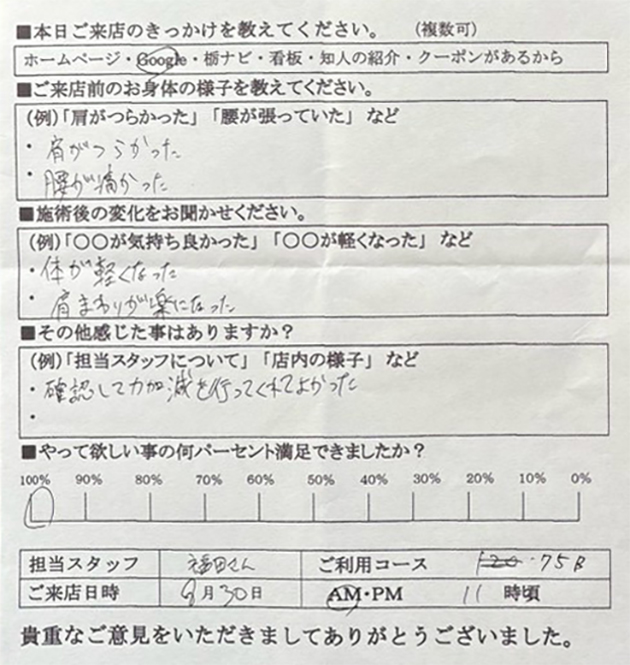 ■本日ご来店のきっかけを教えてください。 （複数可）
ホームページ・Google・栃ナビ・看板・知人の紹介・クーポンがあるから
■ご来店前のお身体の様子を教えてください。
(例)「肩がつらかった」「腰が張っていた」など
・肩がつらかった
・腰が痛かった
■施術後の変化をお聞かせください。
(例)「〇〇が気持ち良かった」「〇〇が軽くなった」など
・体が軽くなった
・肩まわりが楽になった
■その他感じた事はありますか？
(例)「担当スタッフについて」「店内の様子」など
・確認して力加減を行ってくれてよかった
・
■やって欲しい事の何パーセント満足できましたか？
100% 90% 80% 70% 60% 50% 40% 30% 20% 10% 0%
担当スタッフ 福田さん ご利用コース 120・75B
ご来店日時 9月30日 AM・PM 11時頃
貴重なご意見をいただきましてありがとうございました。